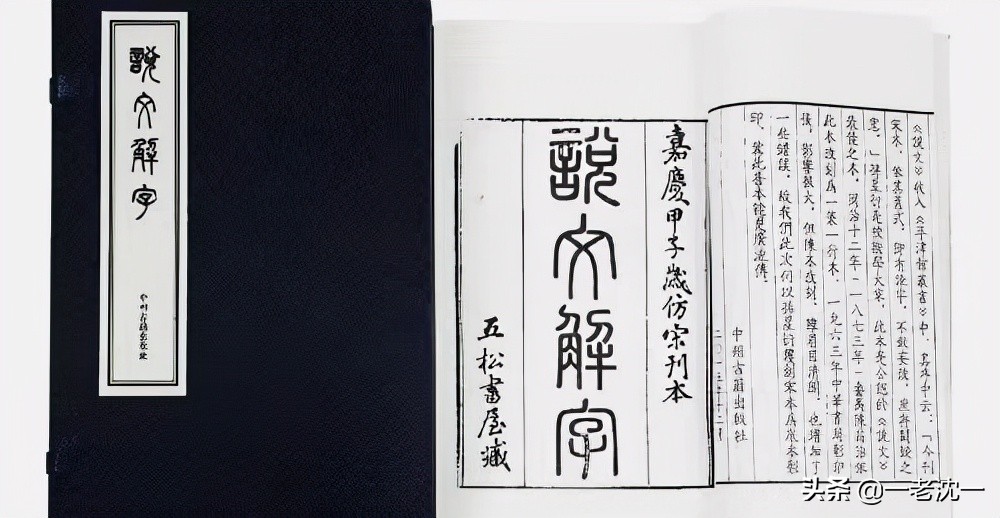 說文解字
中州古籍出版社
嘉慶甲子歲仿宋刊本
說文解字
五松書屋藏
《說文》收入《平津館叢書》中,其序中云:「今刊
宋本,依其舊式,即有譌字,不敢妄改,庶存闕疑之
意。」孫星衍是校勘學大家,此本是公認的《說文》
最佳之本。同治十二年(一八七三年)番禺陳昌治依
此本改刻爲一篆一行本,一九六三年中華書局影印
後,影響最大,但陳本改刻,雖眉目清
一些譌誤,故我們此次仍以孫星衍覆刻宋本爲底本影
印,
中州古籍出版社
二〇一三年十二月
头条 @一老沈一